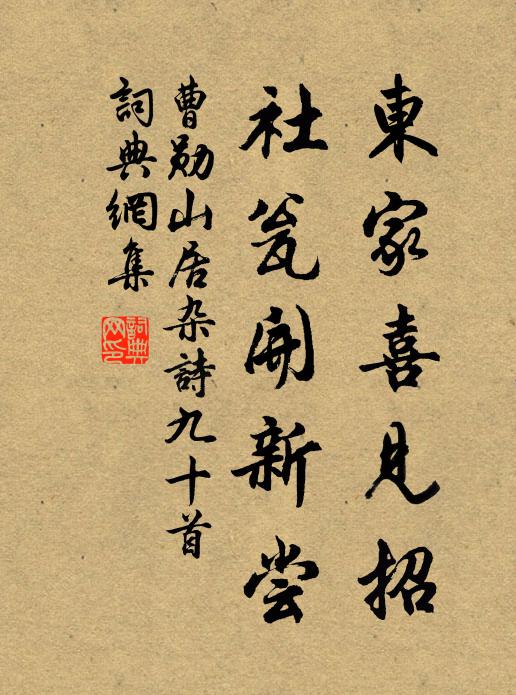 東家喜見招
社瓮開新尝
曹勋山居杂詩九十首
詞典網集
詞典网印